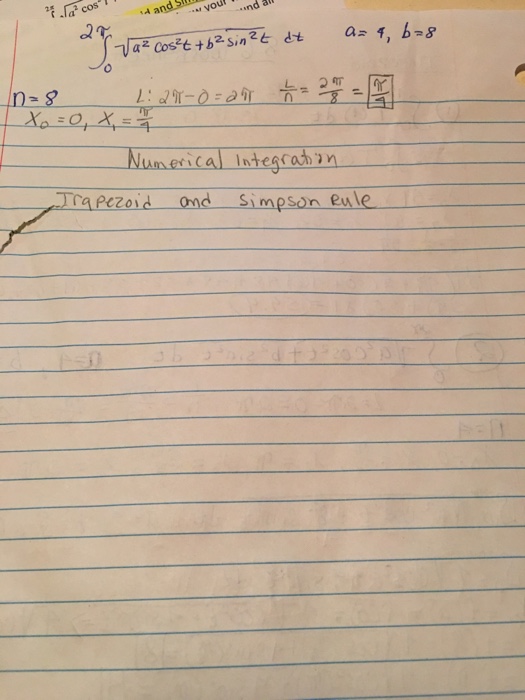 ∫₀^{2π} √(a² cos²t + b² sin²t) dt a = 4, b = 8
n = 8 L: 2π - 0 = 2π L/n = 2π/8 = π/4
X₀ = 0, X₁ = π/4
Numerical Integration
Trapezoid and Simpson Rule